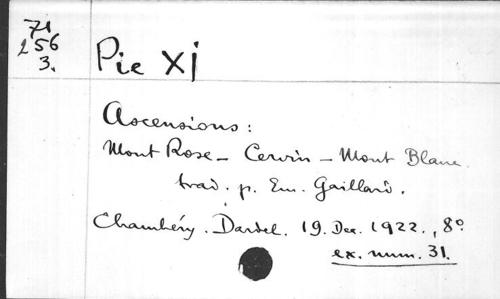 71
256
3.
Pie XI
Ascensions :
Mont Rose - Cervin - Mont Blanc.
trad. p. Em. Gaillard.
Chambéry. Dardel. 19. Dec. 1922., 8°
ex. num. 31.